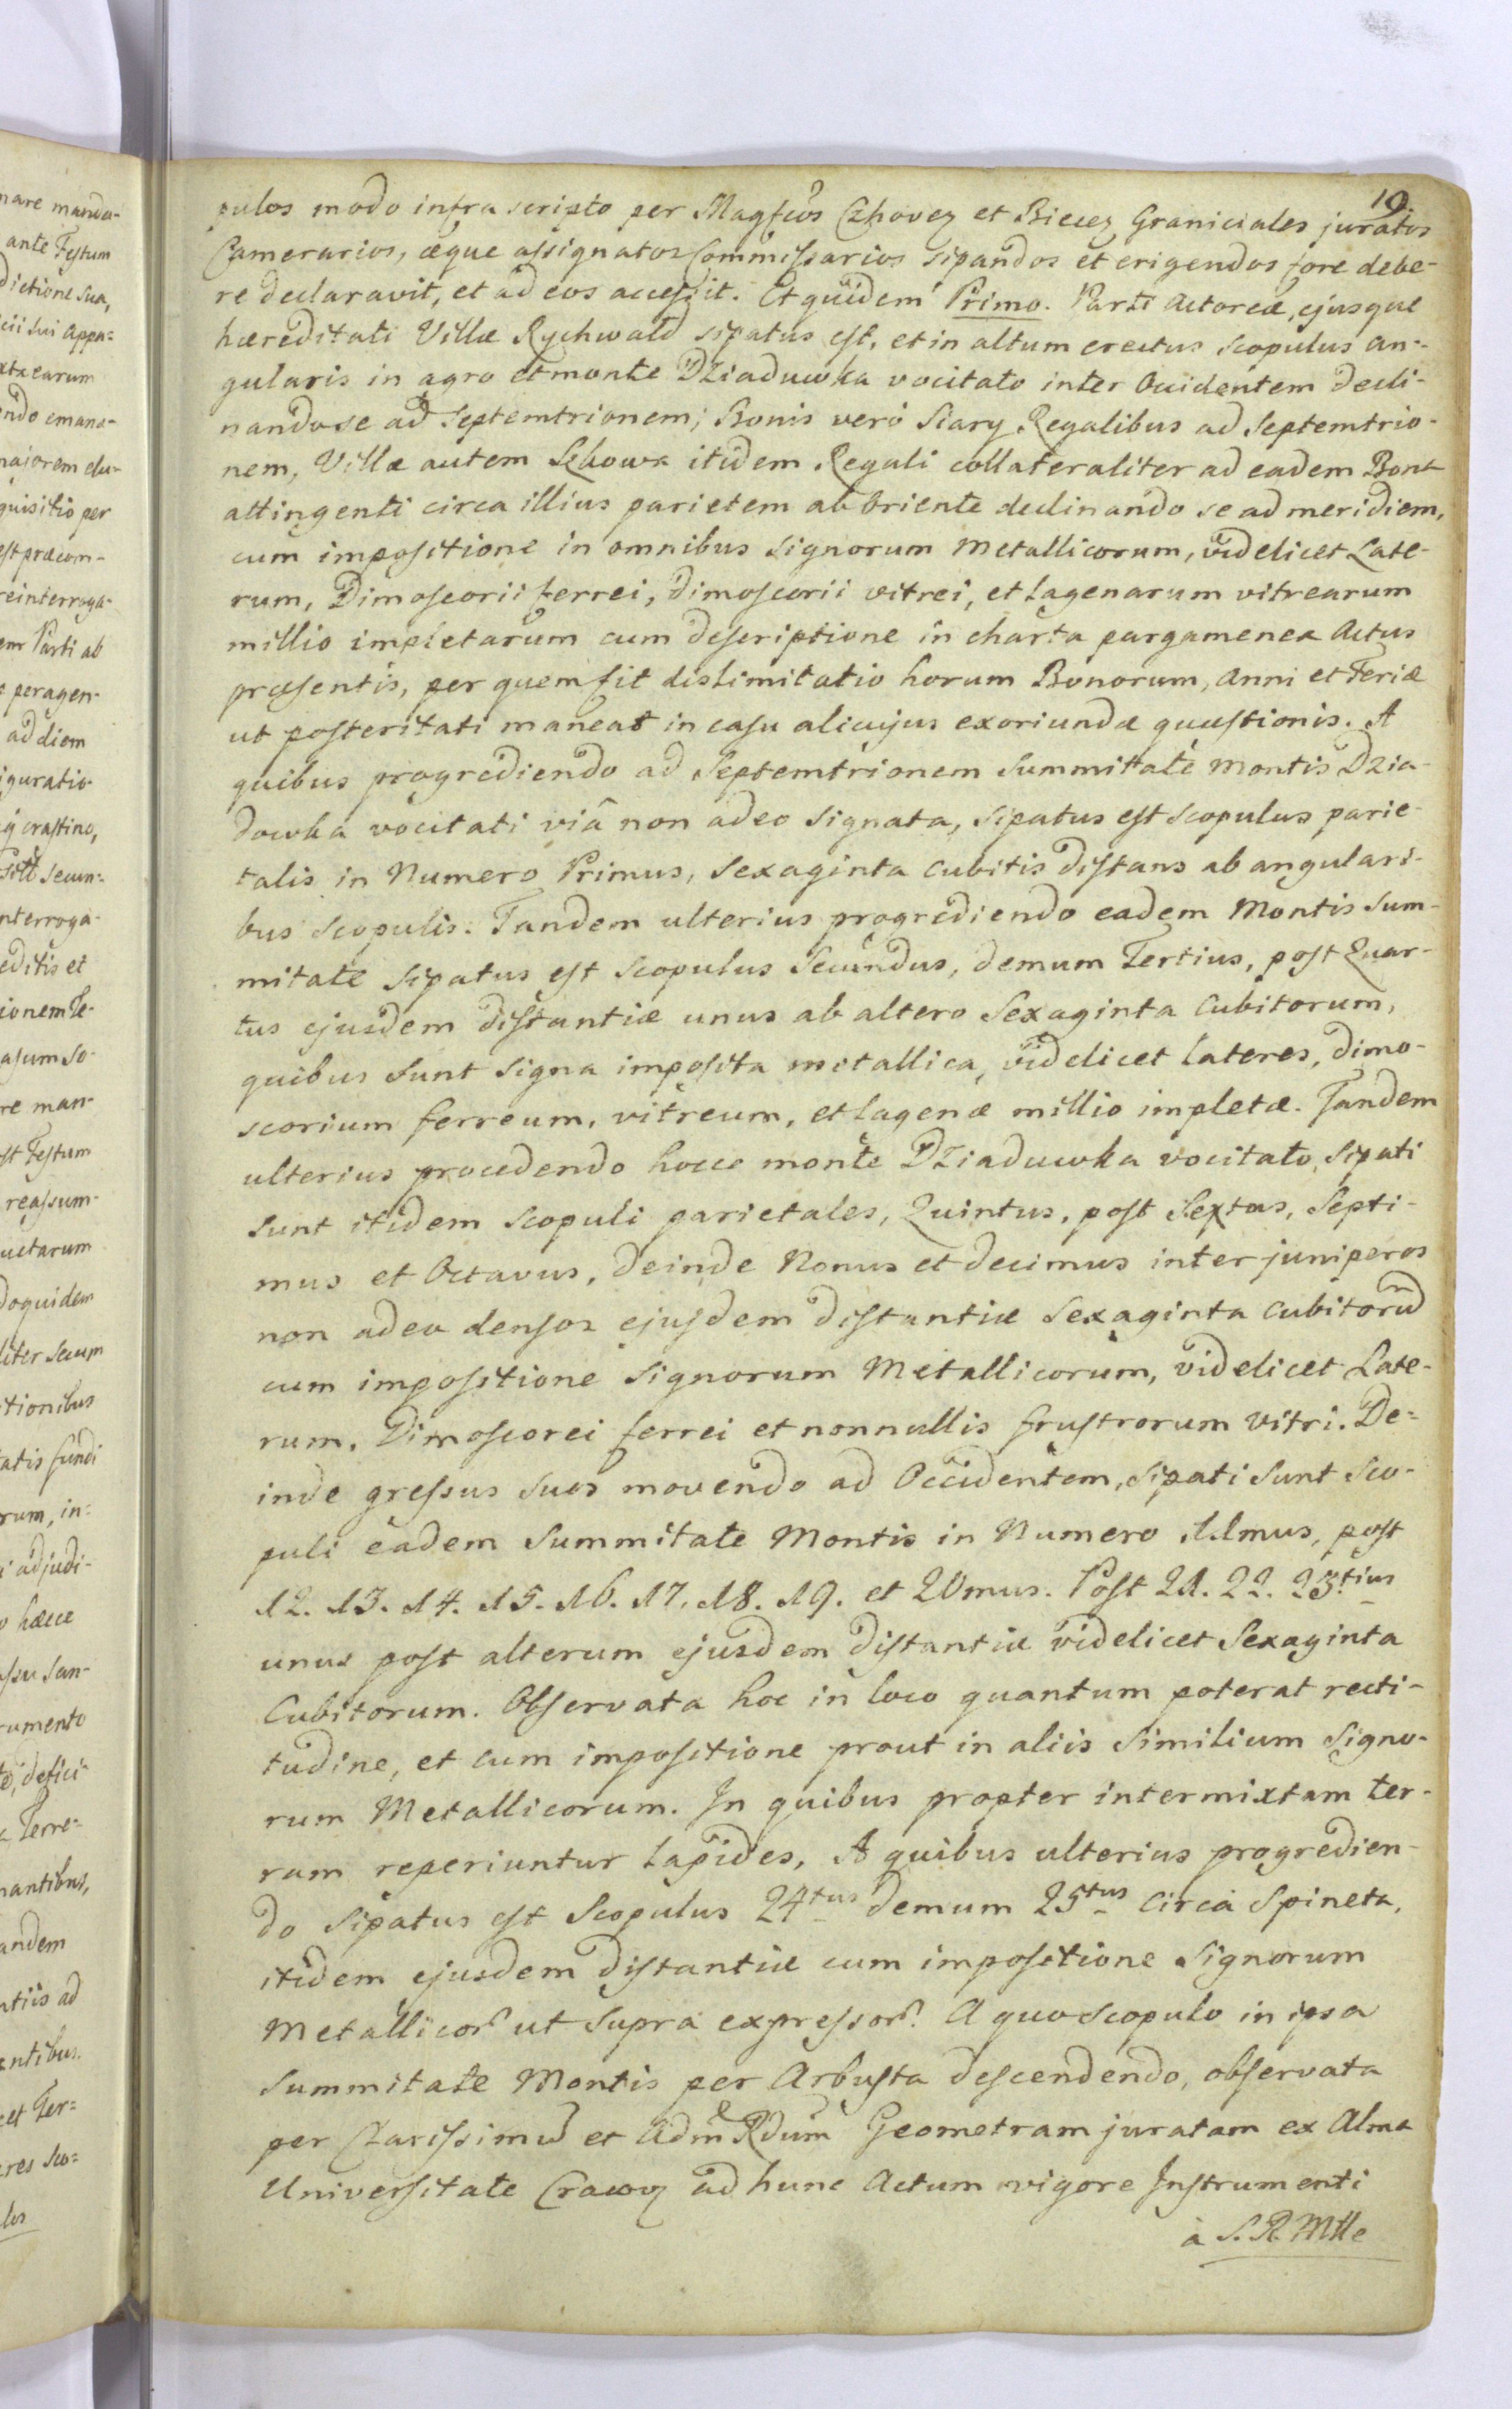 19.
pulos modo infra scripto per Magfcos Czhovez et Biecez Graniciales juratos
Camerarios, æque assignatos Commissarios sipandos et erigendos fore debe-
re declaravit, et ad eos accessit. Et quidem Primo. Parti Actoreæ, ejusque
hæreditati Villæ Rychwald sipatus est, et in altum erectus scopulus an-
gularis in agro et monte Dziaduwka vocitato inter Occidentem decli-
nando se ad Septemtrionem; Bonis verò Siary Regalibus ad Septemtrio-
nem, Villæ autem itidem Regali collateraliter ad eadem Bona
attingenti circa illius parietem ab Oriente declinando se ad meridiem,
cum impositione in omnibus Signorum Metallicorum, videlicet Late-
rum, Dimoscorii ferrei, dimoscorii vitrei, et lagenarum vitrearum
millio impletarum cum descriptione in charta pargamenea Actus
præsentis, per quem fit dislimitatio horum Bonorum, Anni et Feriæ
ut posteritati maneat in casu alicujus exoriundæ quæstionis. A
quibus progrediendo ad Septemtrionem Summitate Montis Dzia-
dowka vocitati viâ non adeo signata, sipatus est scopulus parie-
talis in Numero Primus, Sexaginta Cubitis distans ab angulari-
bus Scopulis. Tandem ulterius progrediendo eadem Montis Sum-
mitate sipatus est Scopulus Secundus, demum Tertius, post Quar-
tus ejusdem distantiæ unus ab altero Sexaginta Cubitorum,
quibus sunt Signa imposita metallica, videlicet lateres, dimo-
scorium ferreum, vitreum, et lagenæ millio impletæ. Tandem
ulterius procedendo hocce monte Dziaduwka vocitato, sipati
sunt itidem Scopuli parietales, Quintus, post Sextus, Septi-
mus et Octavus, deinde Nonus et decimus inter juniperos
non adeo densos ejusdem distantiæ Sexaginta Cubitorū
cum impositione Signorum Metallicorum, videlicet Late-
rum, Dimoscorei ferrei et nonnullis frustrorum Vitri. De=
inde gressus suos movendo ad Occidentem, sipati sunt Sco-
puli eadem Summitate Montis in Numero 11mus, post
12. 13. 14. 15. 16. 17. 18. 19. et 20mus. Post 21. 22. 23.tius
unus post alterum ejusdem distantiæ videlicet Sexaginta
Cubitorum. Observata hoc in loco quantum poterat recti-
tudine, et cum impositione prout in aliis similium Signo-
rum Metallicorum. In quibus propter intermixtam ter-
ram reperiuntur lapides, A quibus ulterius progredien-
do sipatus est Scopulus 24tus demum 25tus circa Spineta,
itidem ejusdem distantiæ cum impositione Signorum
Metallicor. ut supra expressor. A quo scopulo in ipsa
summitate Montis per Arbusta descendendo, observata
per Clarissimū et Adm Rdum Geometram juratam ex Alma
Universitate Cracov ad hunc Actum vigore Instrumenti
à S. R. Mtte